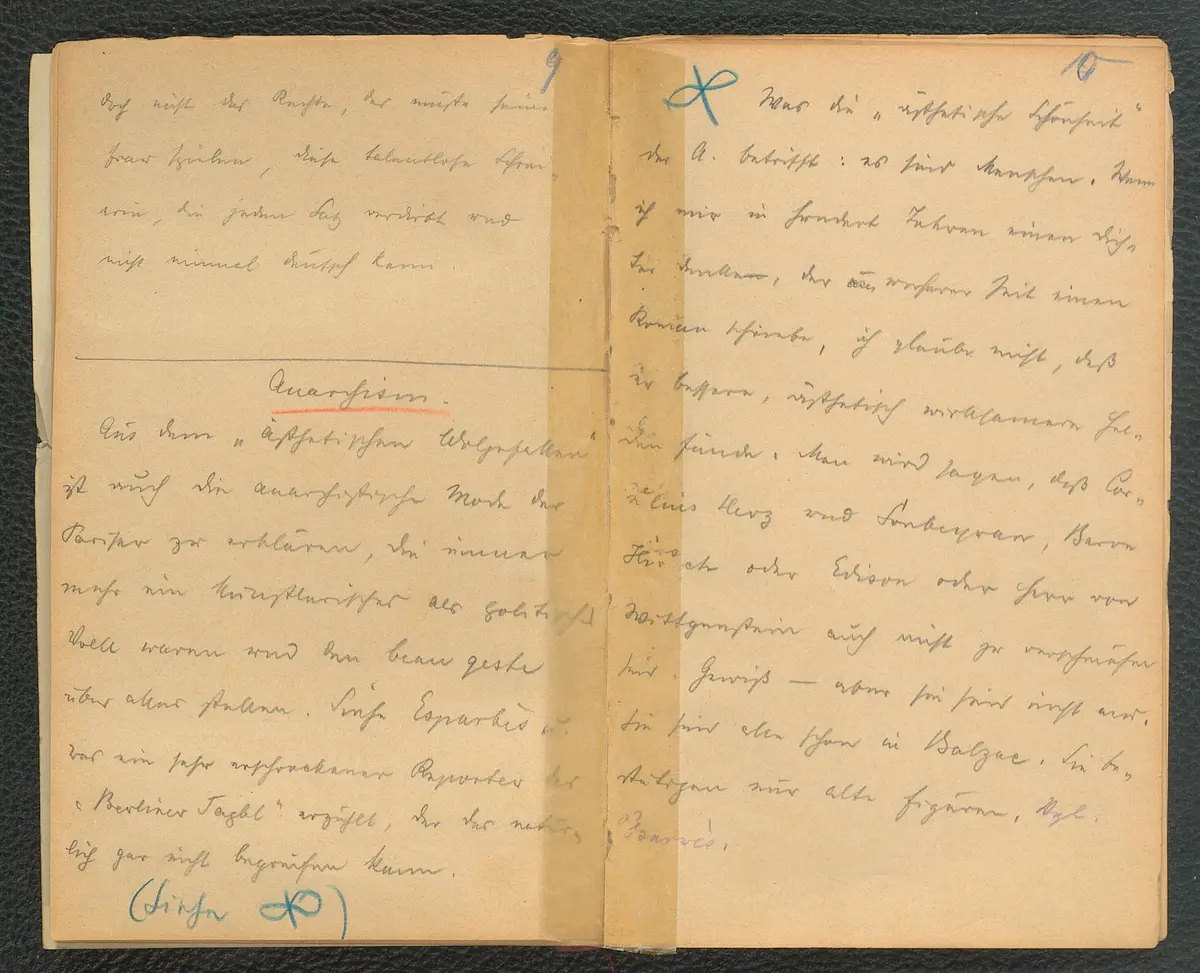 9
doch nicht das Rechte, der müßte seine
Frau spielen, diese talentlose Schrei-
erin, die jeden Satz verdirbt und
nicht einmal deutsch kann.
Anarchism.
Aus dem „ästhetischen Wolgefallen"
ist auch die anarchistische Mode der
Pariser zu erklären, die immer
mehr ein künstlerisches als politisches
Volk waren und den beau geste
über alles stellen. Siehe Esparbès u.
was ein sehr erschrockener Reporter des
„Berliner Tagbl" erzählt, der das natür-
lich gar nicht begreifen kann.
(Siehe )
10
Was die „ästhetische Schönheit"
der A. betrifft: es sind Menschen. Wenn
ich mir in hundert Jahren einen Dich-
ter denke, der aus unserer Zeit einen
Roman schriebe, ich glaube nicht, daß
er bessere, ästhetisch wirksamere Hel-
den fände. Man wird sagen, daß Cor-
nelius Herz und Soubeyran, Baron
Hirsch oder Edison oder Herr von
Wittgenstein auch nicht zu verschmähen
sind. Gewiß — aber sie sind nicht neu.
Sie sind alle schon in Balzac. Sie be-
stätigen nur alte Figuren. Vgl.
Barrès.